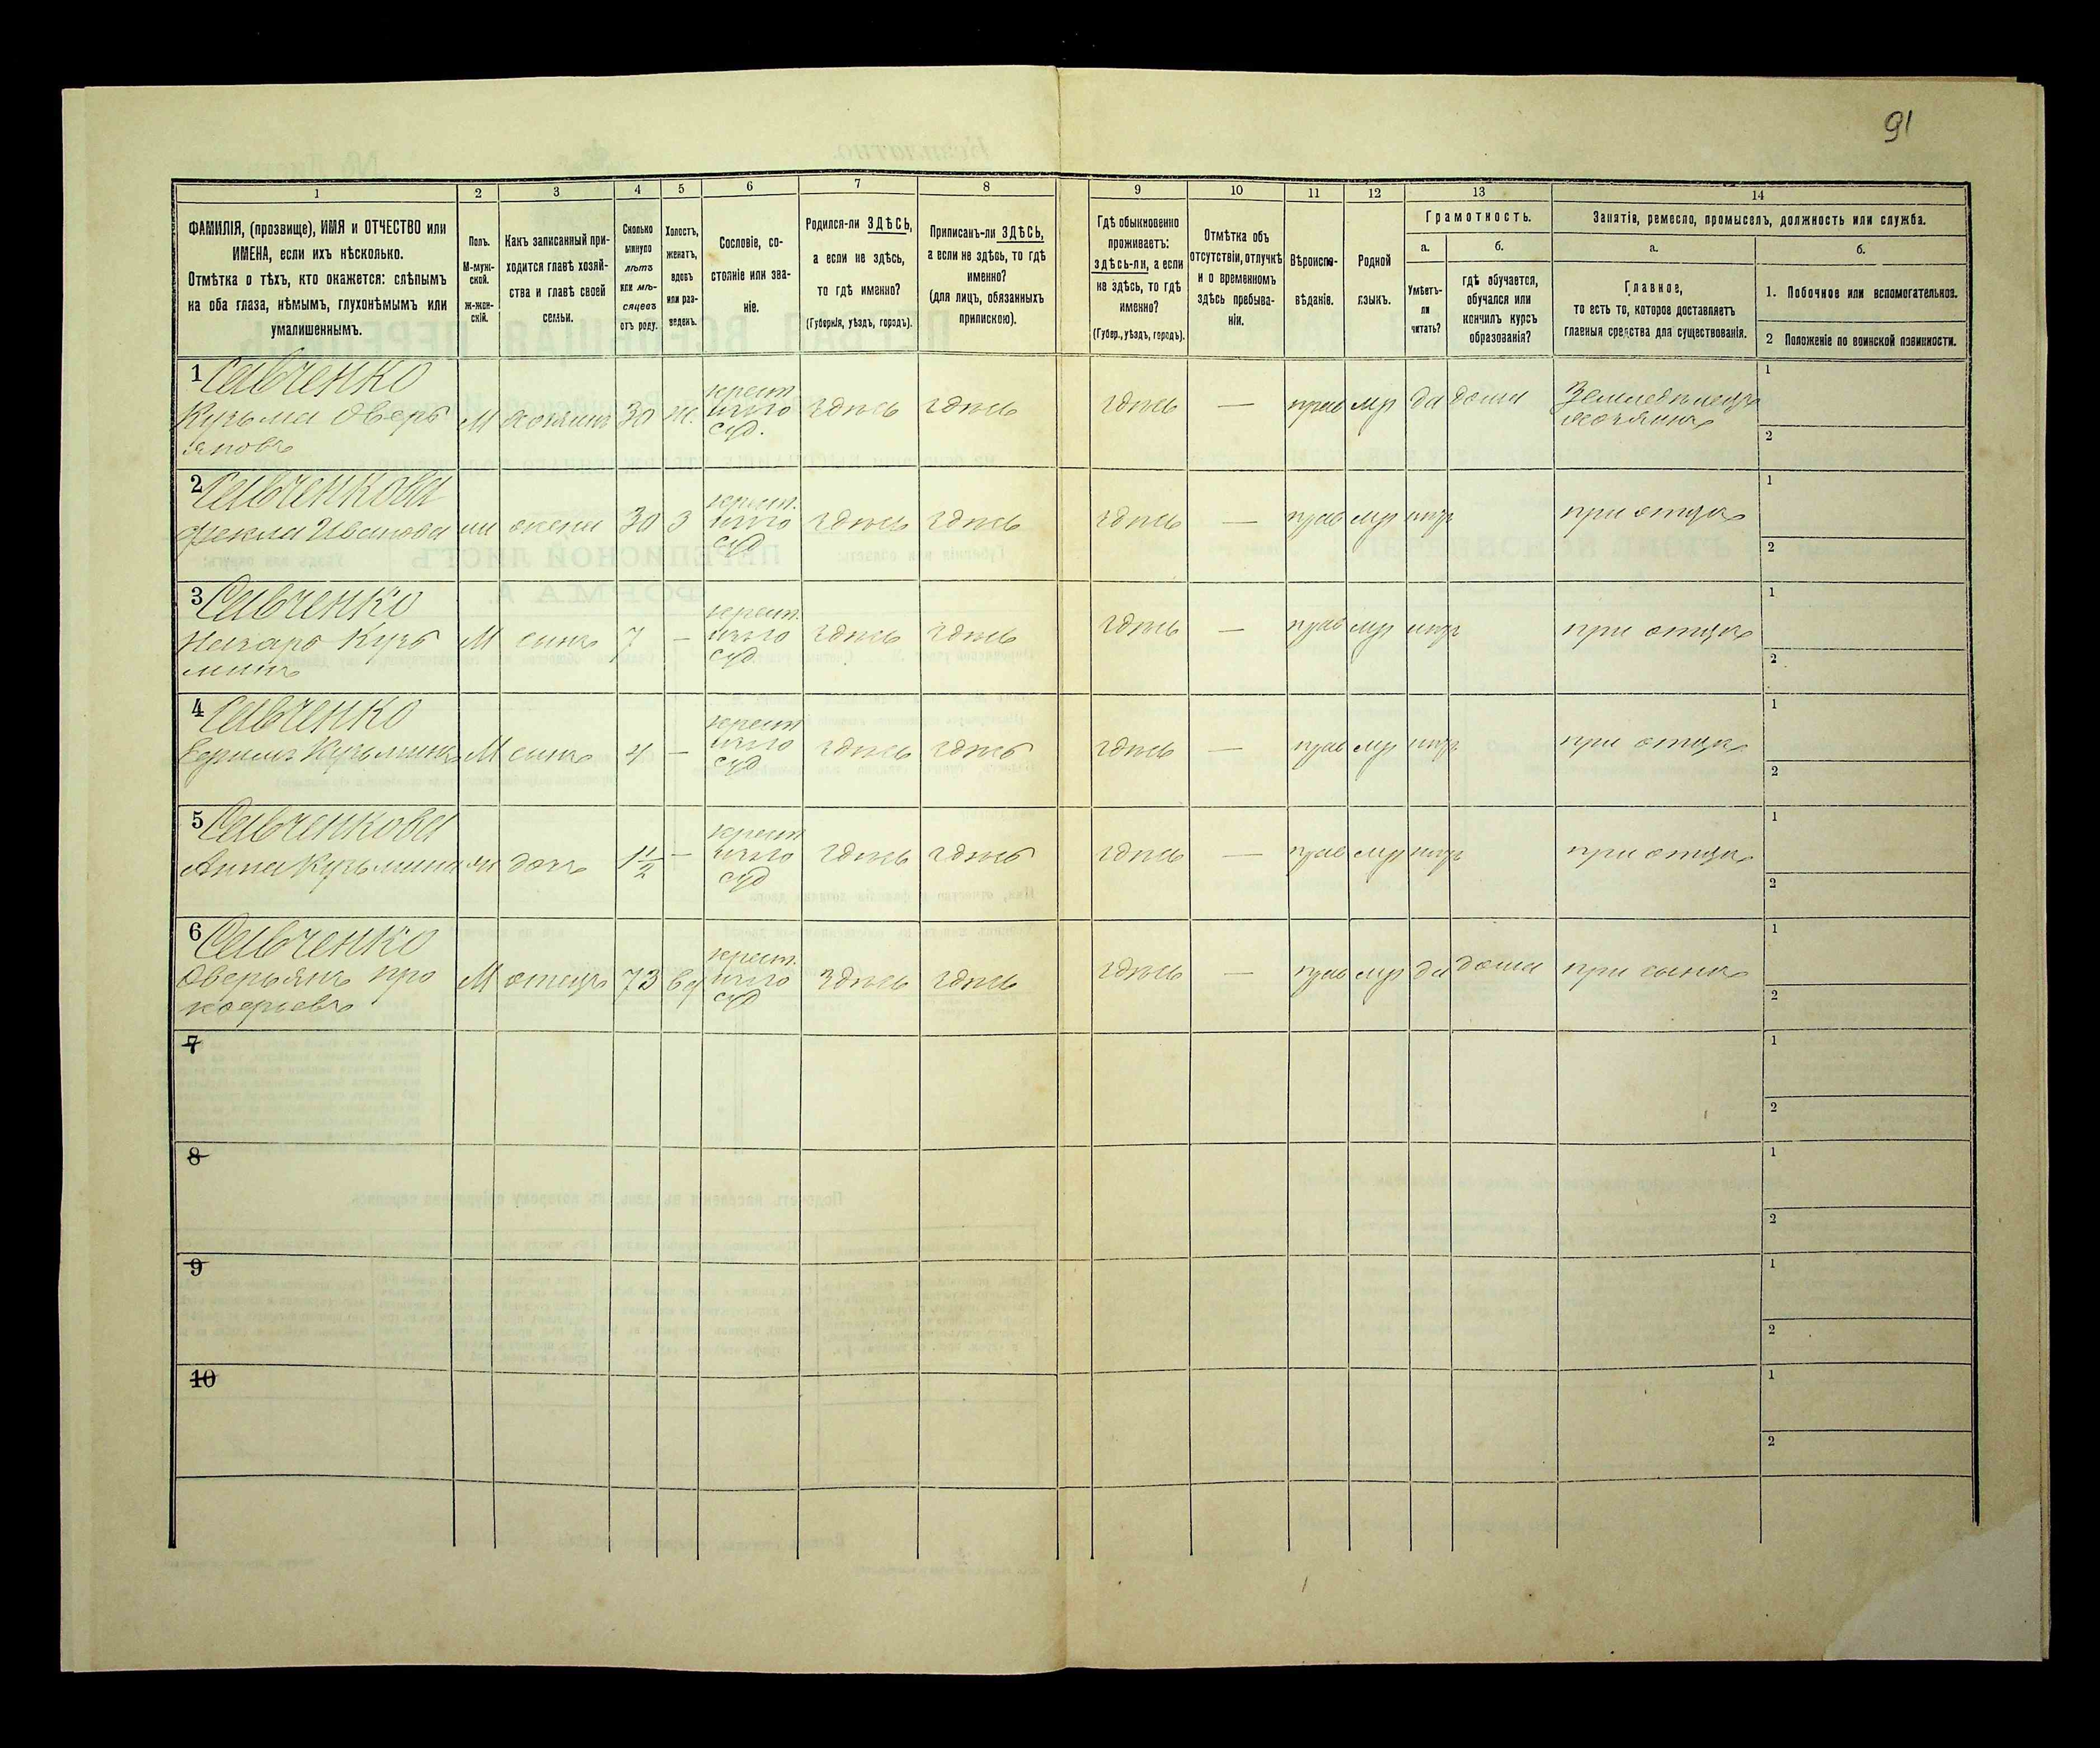 91
1 2 3 4 5 6 7 8 9 10 11 12 13 14
ФАМИЛІЯ, (прозвище), ИМЯ и ОТЧЕСТВО или
ИМЕНА, если ихъ нѣсколько.
Отмѣтка о тѣхъ, кто окажется: слѣпымъ
на оба глаза, нѣмымъ, глухонѣмымъ или
умалишеннымъ.
Полъ.
М-муж-
ской.
ж-жен-
скій.
Какъ записанный при-
ходится главѣ хозяй-
ства и главѣ своей
семьи.
Сколько
минуло
лѣтъ
или мѣ-
сяцевъ
отъ роду.
Холостъ,
женатъ,
вдовъ
или раз-
веденъ.
Сословіе, со-
стояніе или зва-
ніе.
Родился-ли ЗДѢСЬ,
а если не здѣсь,
то гдѣ именно?
(Губернія, уѣздъ, городъ).
Приписанъ-ли ЗДѢСЬ,
а если не здѣсь, то гдѣ
именно?
(для лицъ, обязанныхъ
припискою).
Гдѣ обыкновенно
проживаетъ:
здѣсь-ли, а если
не здѣсь, то гдѣ
именно?
(Губер., уѣздъ, городъ).
Отмѣтка объ
отсутствіи, отлучкѣ
и о временномъ
здѣсь пребыва-
ніи.
Вѣроиспо-
вѣданіе.
Родной
языкъ.
Грамотность.
а.
Умѣетъ-
ли
читать?
б.
гдѣ обучается,
обучался или
кончилъ курсъ
образованія?
Занятіе, ремесло, промыселъ, должность или служба.
а.
Главное,
то есть то, которое доставляетъ
главныя средства для существованія.
б.
1. Побочное или вспомогательное.
2 Положеніе по воинской повинности.
1 Савченко
Кузьма Оверь
яновъ
М хозяинъ 30 ж. крест
здѣсь здѣсь здѣсь — прав мр да дома Земледѣлецъ
хозяинъ
1
2
2 Савченкова
Фекла Иванова
жена 30 З крест.
здѣсь здѣсь здѣсь — прав мр при отцѣ
1
2
3 Савченко
Назаро Кузь
минъ
М сынъ 7 — крест.
здѣсь здѣсь здѣсь — прав мр при отцѣ
1
2
4 Савченко
Кузьминъ М сынъ 4 — крест
здѣсь здѣсь здѣсь — прав мр при отцѣ
1
2
5 Савченкова
Анна Кузьмина дочь 1 1/2 — крест
здѣсь здѣсь здѣсь — прав мр при отцѣ
1
2
6 Савченко
Оверьянъ Про
кофіевъ
М отецъ 73 вд крест.
здѣсь здѣсь здѣсь — прав мр да дома при сынѣ
1
2
7
1
2
8
1
2
9
1
2
10
1
2